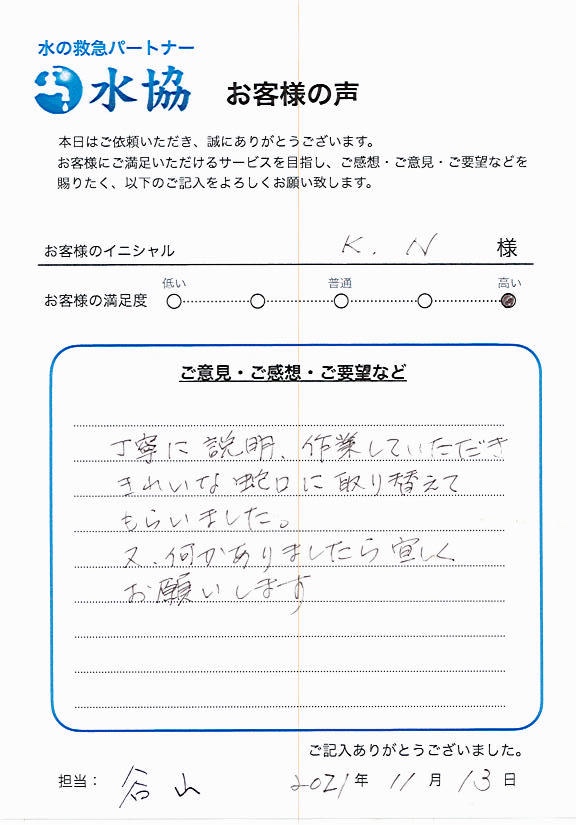 水の救急パートナー
水協 お客様の声
本日はご依頼いただき、誠にありがとうございます。
お客様にご満足いただけるサービスを目指し、ご感想・ご意見・ご要望などを
賜りたく、以下のご記入をよろしくお願い致します。
お客様のイニシャル K. N 様
低い 普通 高い
お客様の満足度
ご意見・ご感想・ご要望など
丁寧に説明、作業していただき
きれいな蛇口に取り替えて
もらいました。
又、何かありましたら宜しく
お願いします
ご記入ありがとうございました。
担当： 谷山 2021年 11月 13日